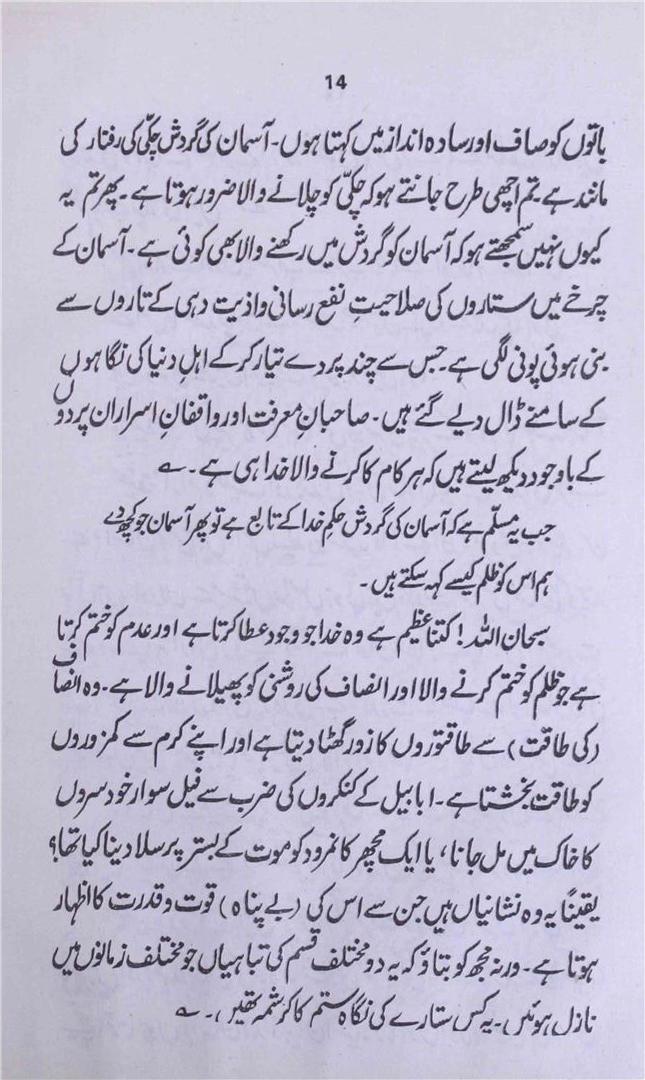 14
باتوں کو صاف اور سادہ انداز میں کہتا ہوں۔ آسمان کی گردش چکّی کی رفتار کی
مانند ہے۔ تم اچھی طرح جانتے ہو کہ چکّی کو چلانے والا ضرور ہوتا ہے۔ پھر تم یہ
کیوں نہیں سمجھتے ہو کہ آسمان کو گردش میں رکھنے والا بھی کوئی ہے۔ آسمان کے
چرخے میں ستاروں کی صلاحیتِ نفع رسانی و اذیت دہی کے تاروں سے
بنی ہوئی پونی لگی ہے۔ جس سے چند پردے تیار کرکے اہلِ دنیا کی نگاہوں
کے سامنے ڈال دیے گئے ہیں۔ صاحبانِ معرفت اور واقفانِ اسرار ان پردوں
کے باوجود دیکھ لیتے ہیں کہ ہر کام کا کرنے والا خدا ہی ہے۔ ؎
جب یہ مسلّم ہے کہ آسمان کی گردش حکمِ خدا کے تابع ہے تو پھر آسمان جو کچھ دے
ہم اس کو ظلم کیسے کہہ سکتے ہیں۔
سبحان اللہ! کتنا عظیم ہے وہ خدا جو وجود عطا کرتا ہے اور عدم کو ختم کرتا
ہے جو ظلم کو ختم کرنے والا اور انصاف کی روشنی کو پھیلانے والا ہے۔ وہ انصاف
(کی طاقت) سے طاقتوروں کا زور گھٹا دیتا ہے اور اپنے کرم سے کمزوروں
کو طاقت بخشتا ہے۔ ابابیل کے کنکروں کی ضرب سے فیل سوار خودسروں
کا خاک میں مل جانا، یا ایک مچھر کا نمرود کو موت کے بستر پر سلا دینا کیا تھا؟
یقیناً یہ وہ نشانیاں ہیں جن سے اس کی (بے پناہ) قوت و قدرت کا اظہار
ہوتا ہے۔ ورنہ مجھ کو بتاؤ کہ یہ دو مختلف قسم کی تباہیاں جو مختلف زمانوں میں
نازل ہوئیں۔ یہ کس ستارے کی نگاہ ستم کا کرشمہ تھیں۔ ؎